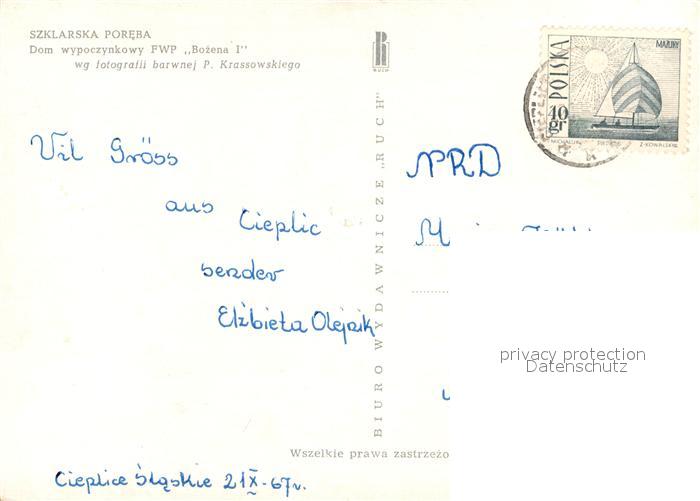 SZKLARSKA PORĘBA
Dom wypoczynkowy FWP „Bożena I"
wg fotografii barwnej P. Krassowskiego
RUCH
POLSKA
MAZURY
40 gr
Z. KOWALSKI
Vil Gröss
aus Cieplic
sender
Elżbieta Olejnik
Cieplice Śląskie 21 X -67r.
BIURO WYDAWNICZE „RUCH"
NRD
privacy protection
Datenschutz
Wszelkie prawa zastrzeżo